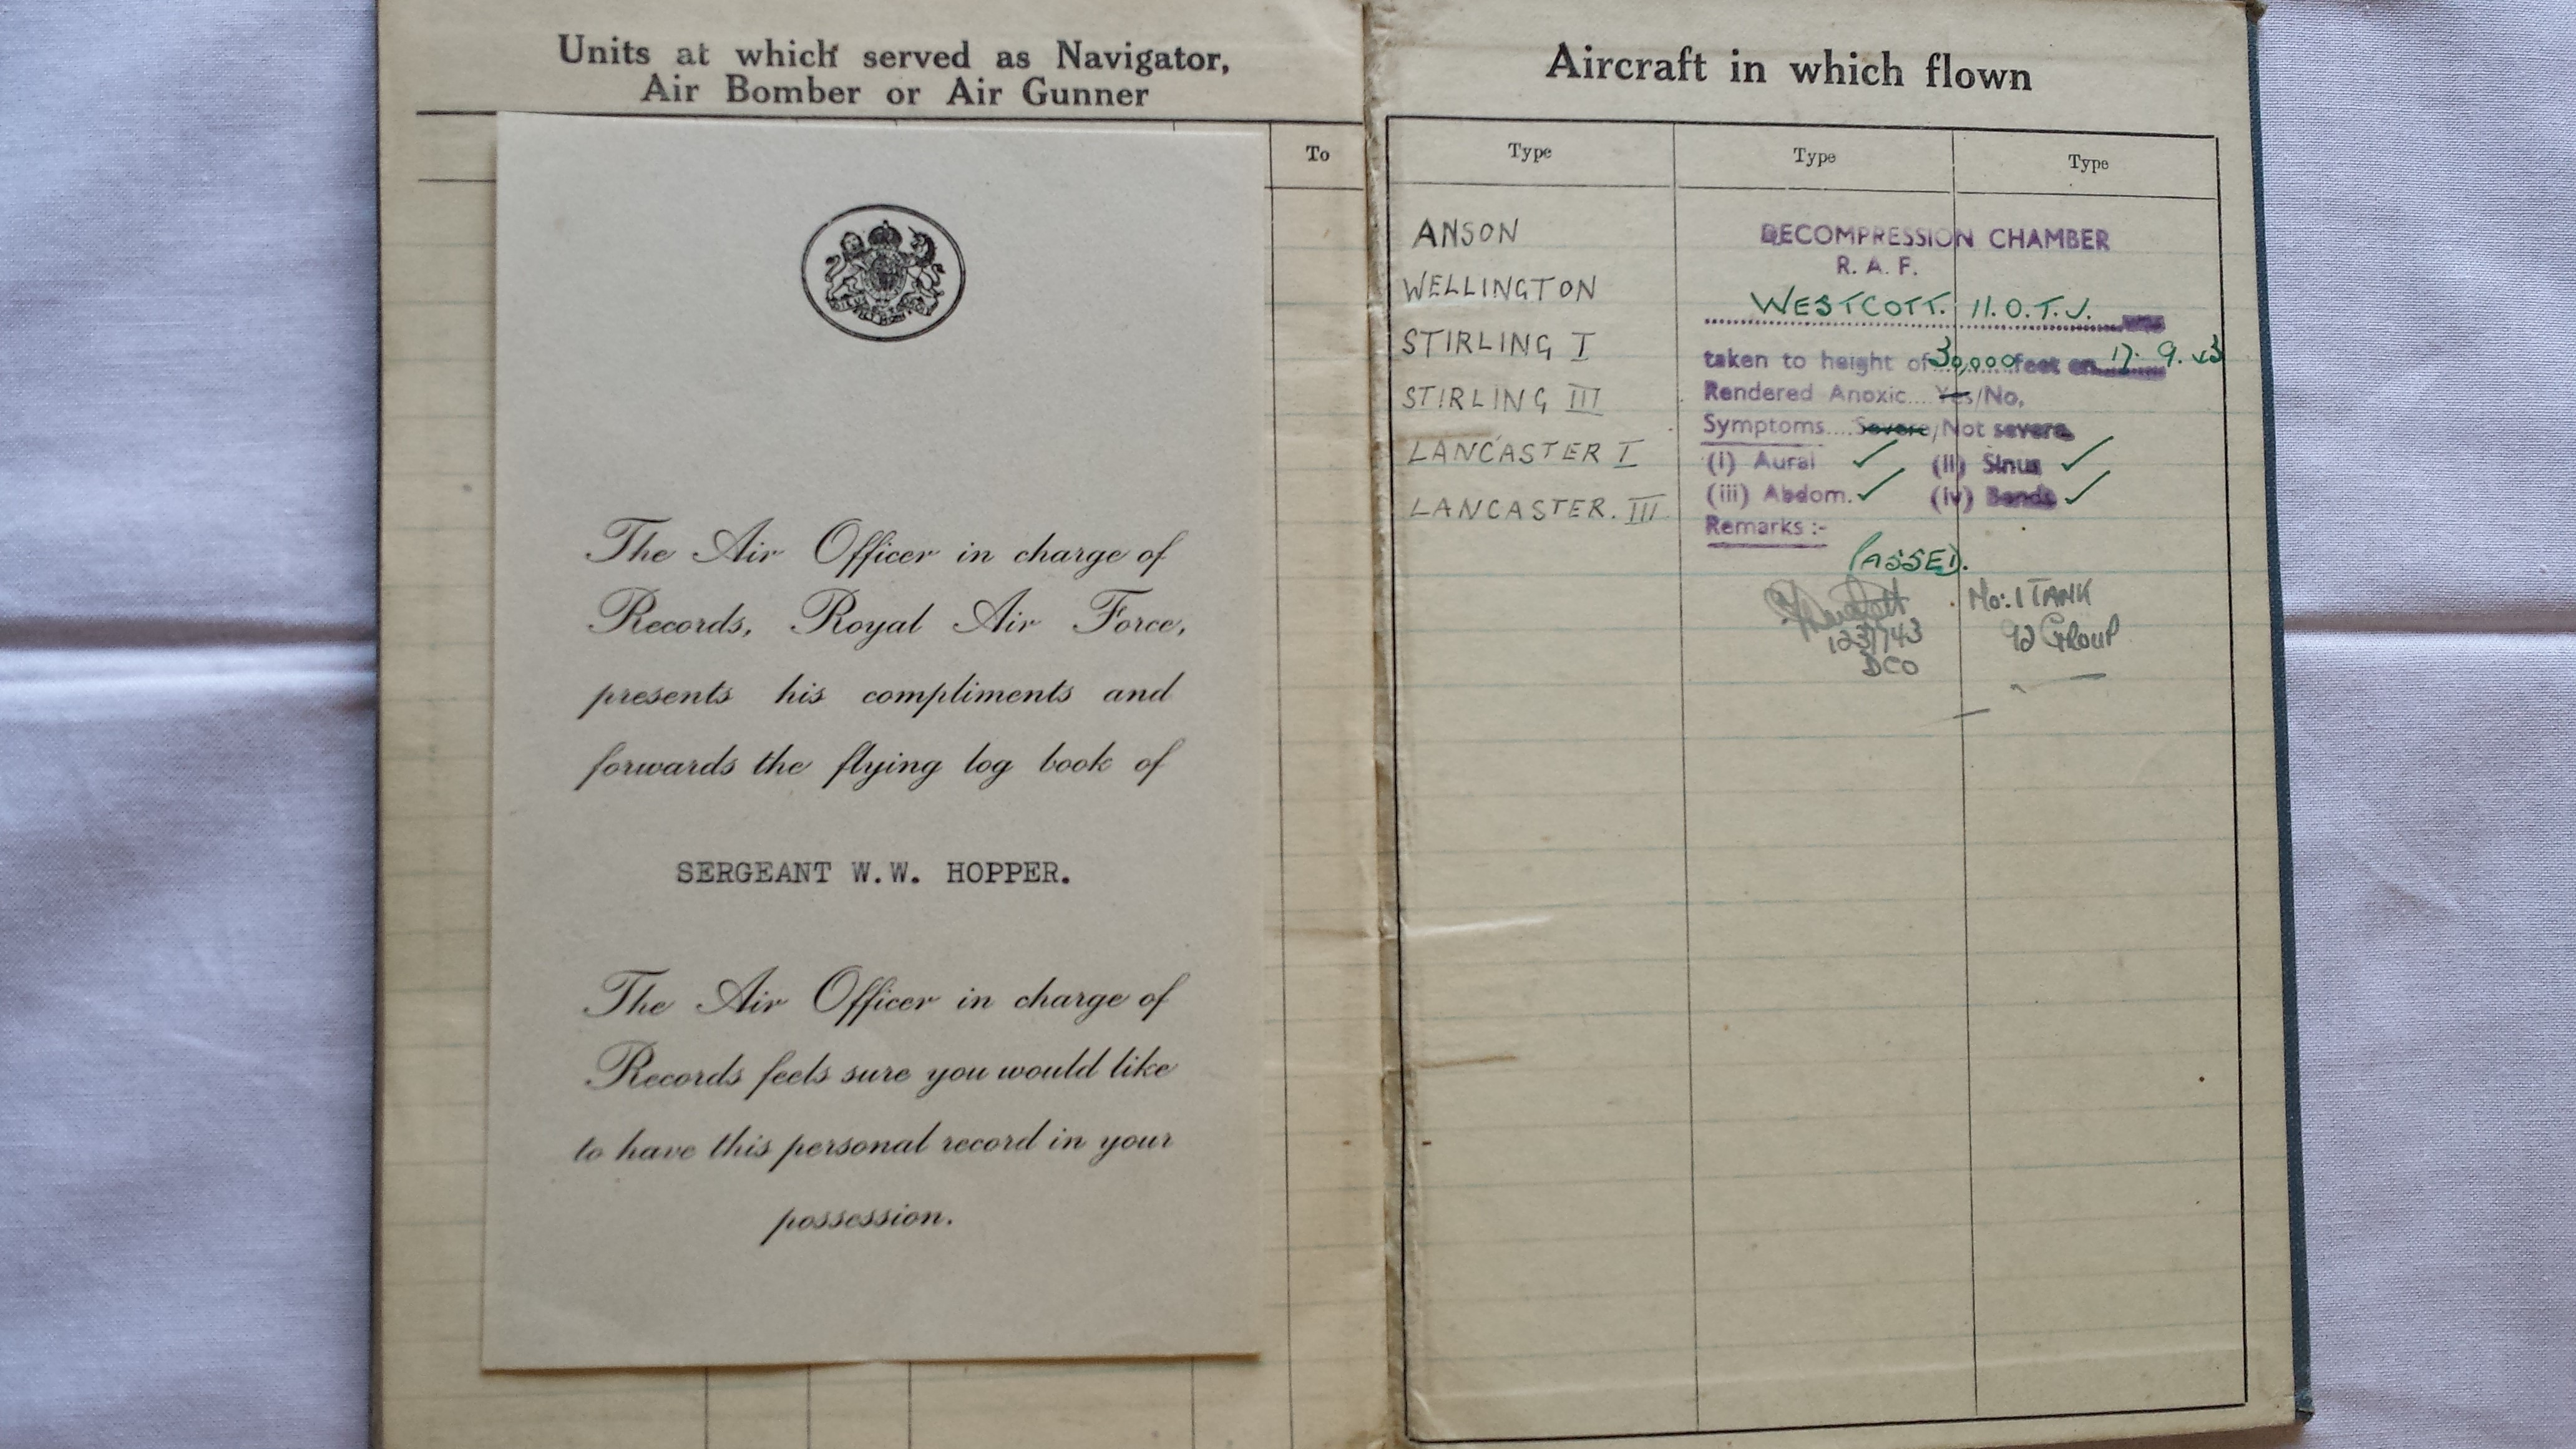 Units at which served as Navigator,
Air Bomber or Air Gunner
To
The Air Officer in charge of
Records, Royal Air Force,
presents his compliments and
forwards the flying log book of
SERGEANT W.W. HOPPER.
The Air Officer in charge of
Records feels sure you would like
to have this personal record in your
possession.
Aircraft in which flown
Type Type Type
ANSON
WELLINGTON
STIRLING I
STIRLING III
LANCASTER I
LANCASTER. III
DECOMPRESSION CHAMBER
R. A. F.
WESTCOTT. 11. O.T.U. was
taken to height of 30,000 feet on 17. 9. 43
Rendered Anoxic.... Yes/No.
Symptoms.... Severe/Not severe.
(i) Aural ✓ (ii) Sinus ✓
(iii) Abdom. ✓ (iv) Bends ✓
Remarks :-
PASSED.
123743
DCO
No: 1 TANK
92 GROUP